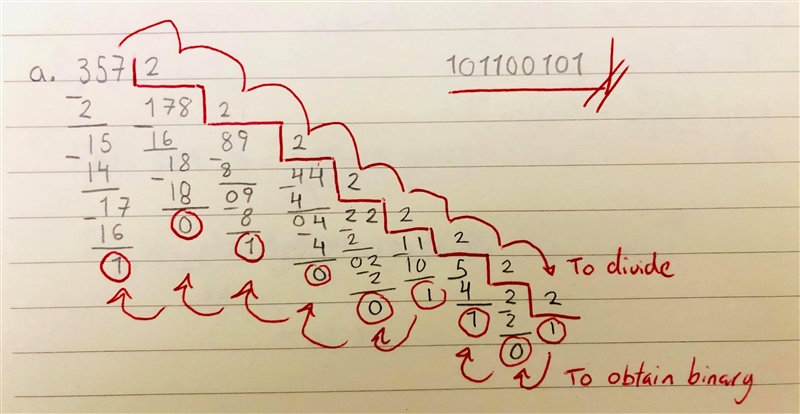 a. 357 2 101100101
-2 178 2
15 -16 89 2
-14 -18 -8 44 2
-17 18 09 -4 22 2
16 0 -8 04 -2 11 2
1 1 -4 02 10 5 2 To divide
0 -2 1 4 2 2
0 1 -2 1
0
To obtain binary